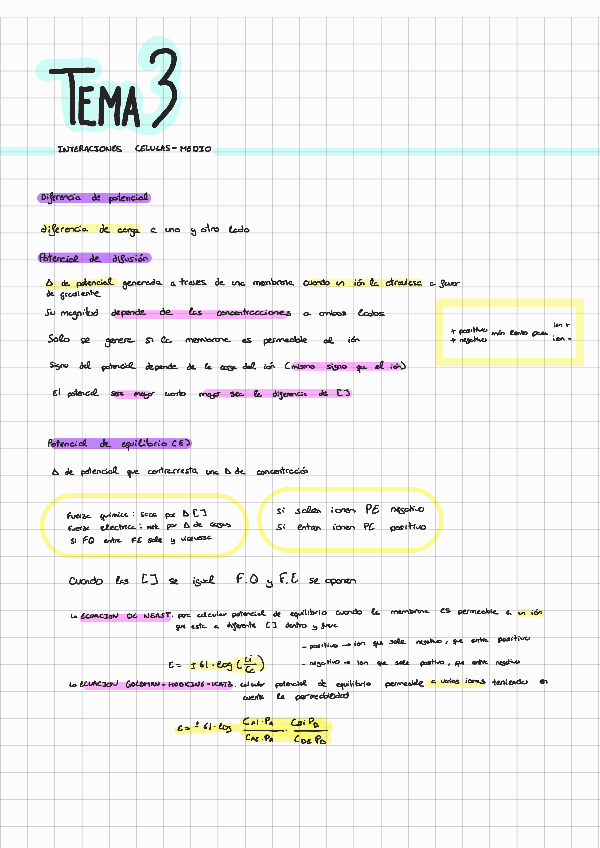 TEMA 3
INTERACIONES CELULAS-MEDIO
Diferencia de potencial
diferencia de carga a uno y otro lado
Potencial de difusión
Δ de potencial generada a traves de una membrana cuando un ión la atraviesa a favor
de gradiente
Su magnitud depende de las concentracciones a ambos lados
+ positivo más lento para ion +
+ negativo ion -
Solo se genera si la membrana es permeable al ión
Signo del potencial depende de la carga del ión (mismo signo que el ión)
El potencial sera mayor cuanto mayor sea la diferencia de []
Potencial de equilibrio (E)
Δ de potencial que contrarresta una Δ de concentración
Fuerza quimica: por Δ []
Fuerza electrica: por Δ de cargas
Si FQ entra FE sale y viceversa
Si salen iones PE negativo
Si entran iones PE positivo
Cuando las [] se igual F.Q y F.E se oponen
ECUACION DE NERST. para calcular potencial de equilibrio cuando la membrana es permeable a un ión
que esta a diferente [] dentro y fuera
- positivo → ion que sale negativo, que entra positivo
E = ±61·log (Ci/Ce)
- negativo → ion que sale positivo, que entra negativo
ECUACION GOLDMAN-HODKING-KATZ. calcular potencial de equilibrio permeable a varios iones teniendo en
cuenta la permeabilidad
E = ± 61·log CAi·PA / CAE·PA · CBi PB / CBE PB